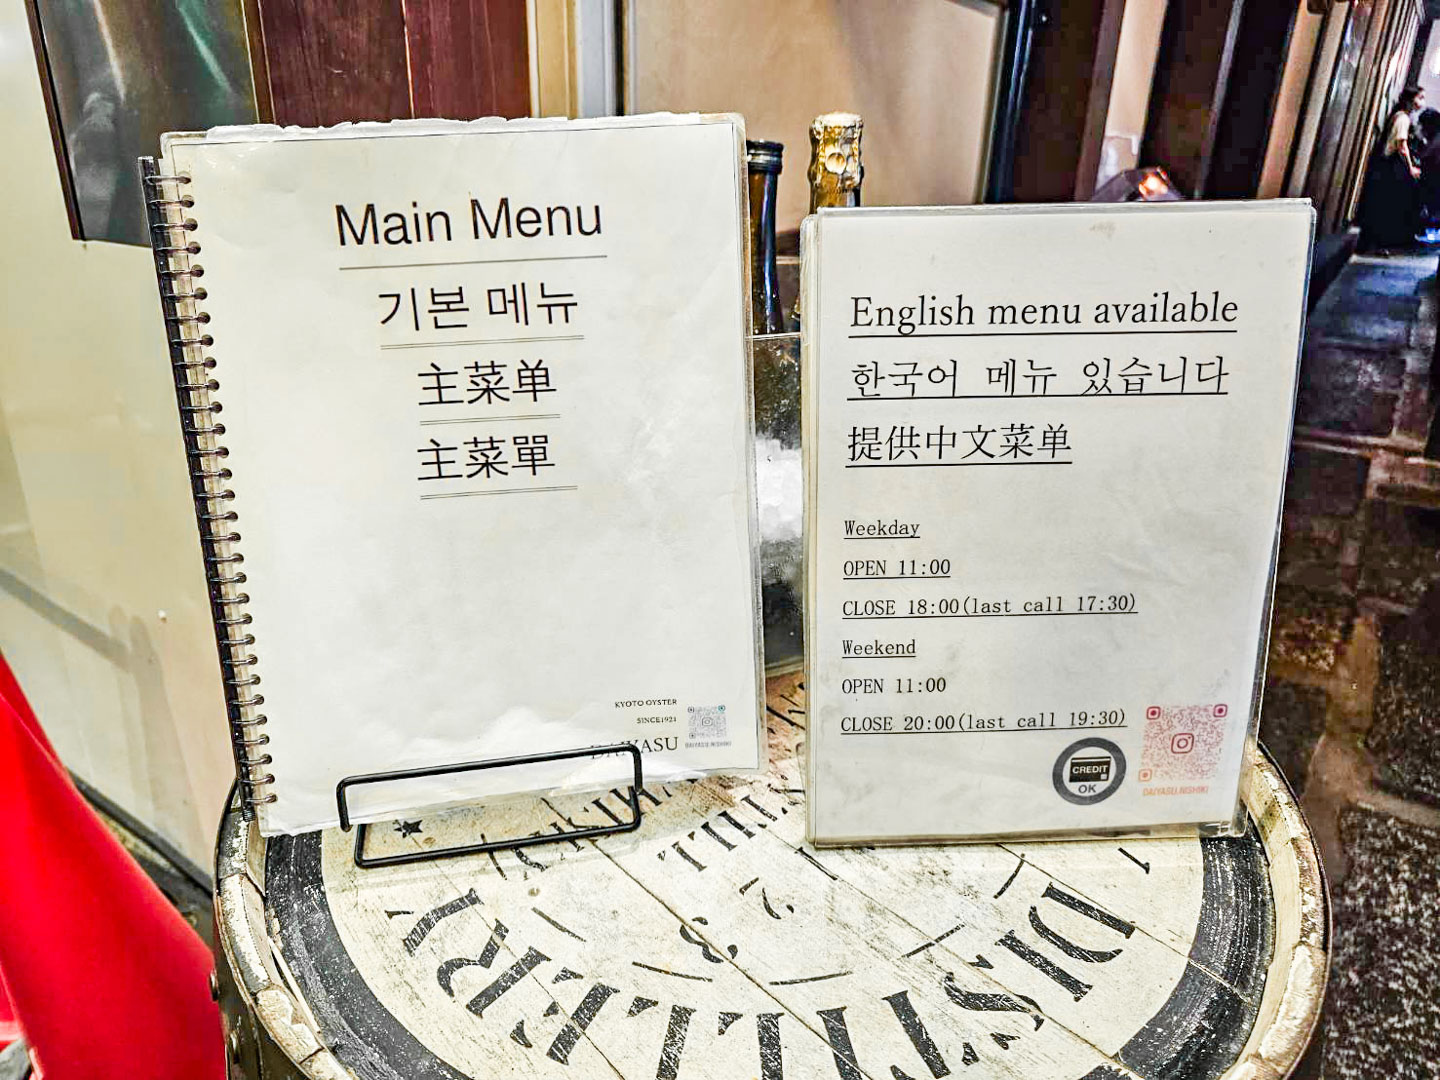 Main Menu
기본 메뉴
主菜单
主菜單
KYOTO OYSTER
SINCE1921
DAIYASU
DAIYASU.NISHIKI
English menu available
한국어 메뉴 있습니다
提供中文菜单
Weekday
OPEN 11:00
CLOSE 18:00(last call 17:30)
Weekend
OPEN 11:00
CLOSE 20:00(last call 19:30)
CREDIT
OK
DAIYASU.NISHIKI
DISTILLERY